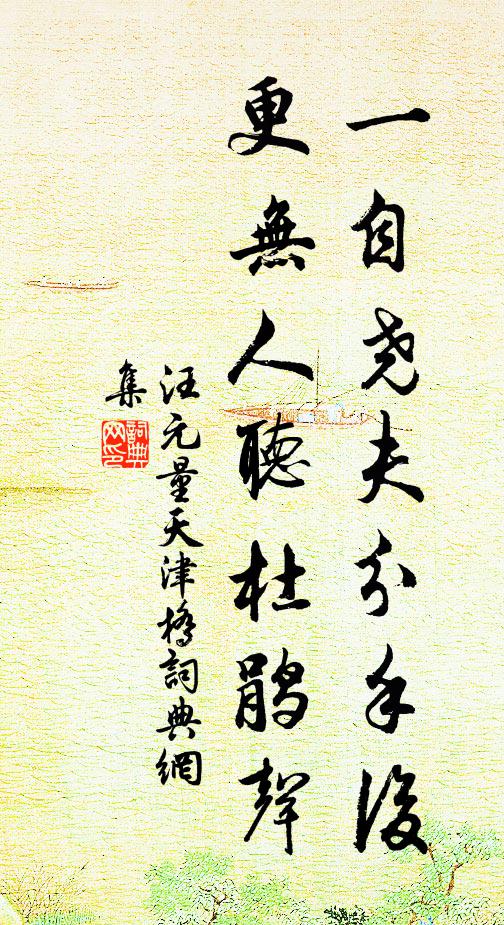 一自尧夫分手後
更無人聽杜鹃聲
汪元量天津橋詞典網
集
詞典网印